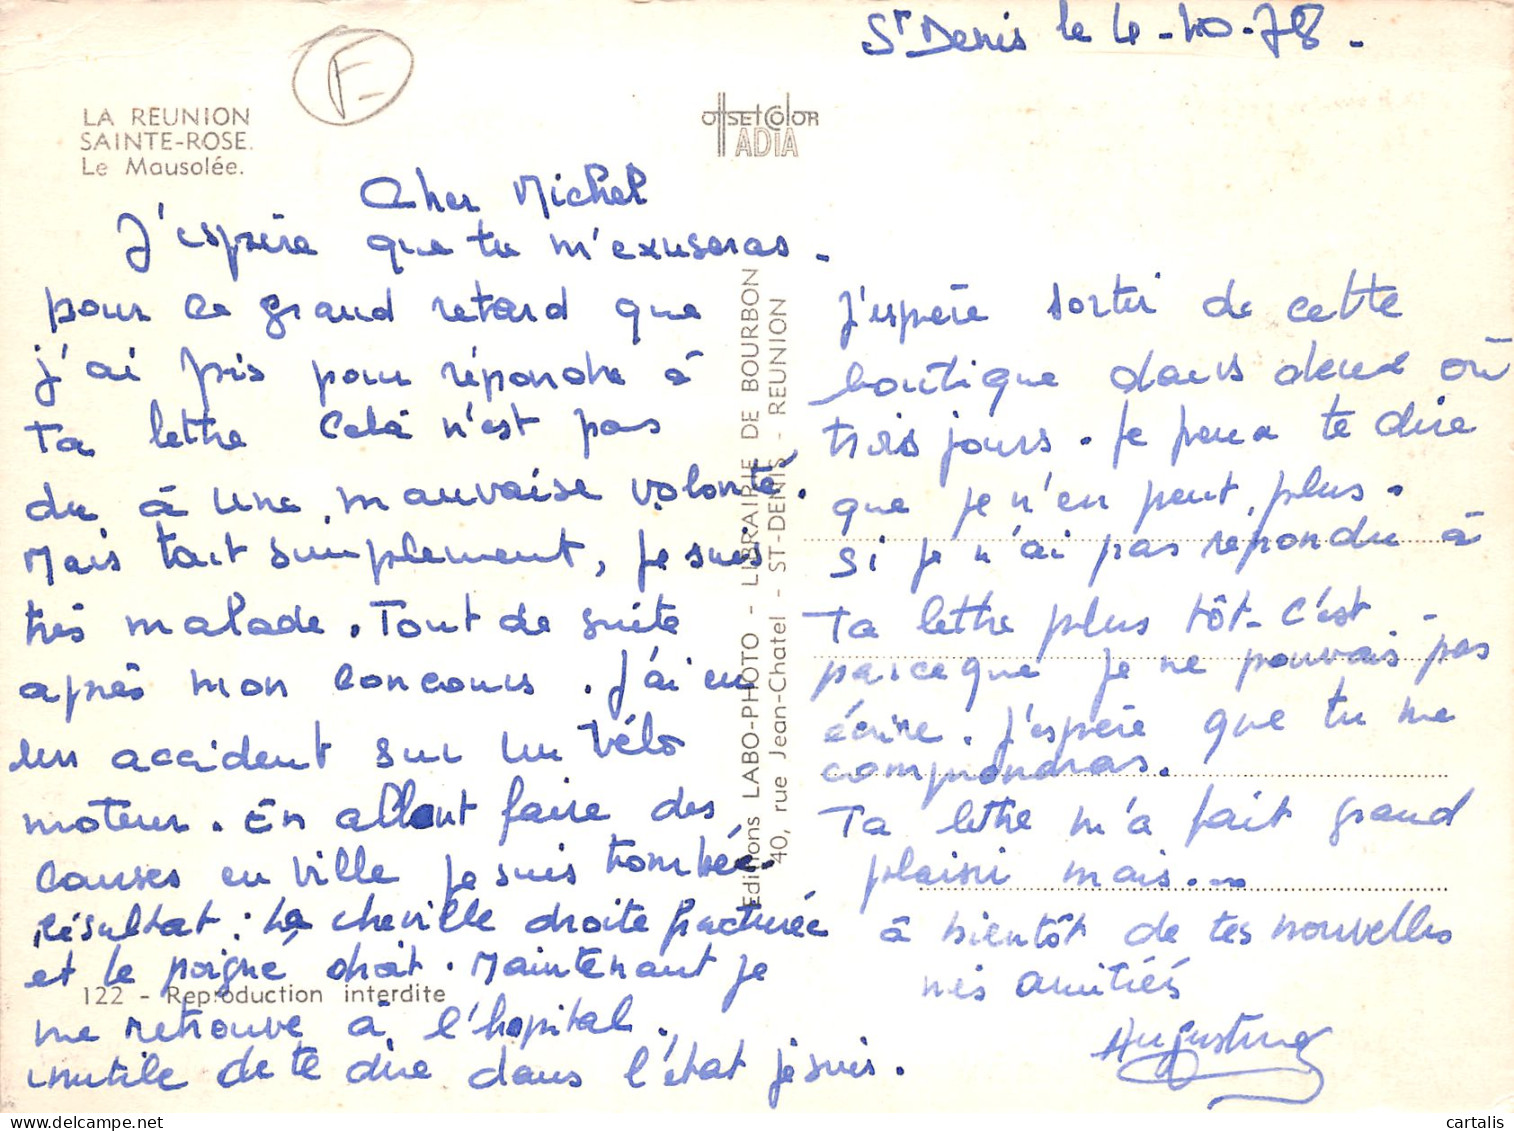 St Denis le 4-10-78.
F-
LA REUNION
SAINTE-ROSE.
Le Mausolée.
OffSEt ColOR
ADIA
Cher Michel
J'espère que tu m'exuseras.
pour ce grand retard que
j'ai pris pour répondre à
Ta lettre Celà n'est pas
du à une mauvaise volonté.
Mais tout simplement, je suis
très malade. Tout de suite
après mon concours. J'ai eu
un accident sur un vélo
moteur. En allant faire des
courses en ville je suis tombée.
résultat : La cheville droite facturée
et le poigné droit. Maintenant je
me retrouve à l'hopital.
inutile de te dire dans l'état je suis.
122 - Reproduction interdite
Editions LABO-PHOTO - LIBRAIRIE DE BOURBON
40, rue Jean-Chatel - ST-DENIS - REUNION
J'espère sortir de cette
boutique dans deux où
trois jours. Je peux te dire
que je n'en peut plus.
Si je n'ai pas répondu à
Ta lettre plus tôt - c'est -
parceque je ne pouvais pas
écrire. J'espère que tu me
comprondras.
Ta lettre m'a fait grand
plaisir mais...
à bientôt de tes nouvelles
mes amitiés
Augustine
cartalis